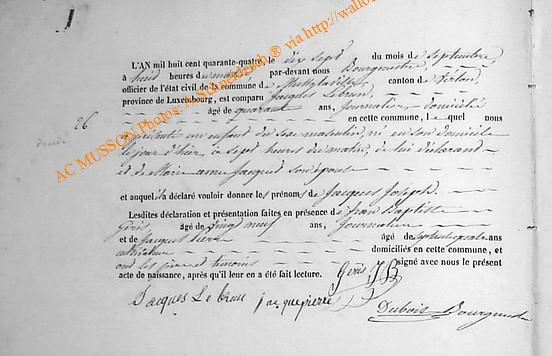 L'AN mil huit cent quarante-quatre, le dix sept du mois de septembre,
à huit heures du matin, par-devant nous Bourgmestre,
officier de l'état civil de la commune de canton de Virton,
province de Luxembourg, est comparu Jacques Lebrun,
âgé de quarante ans, journalier domicilié
26
en cette commune, lequel nous
a présenté un enfant du sexe masculin, né en son domicile
le jour d'hier, à sept heures du matin, de lui déclarant
et de Marie anne Jacques son épouse
et auquel il a déclaré vouloir donner les prénoms de Jacques Joseph.
Lesdites déclaration et présentation faites en présence de Jean Baptiste
Gérès, âgé de vingt neuf ans, journalier
et de Jacques Pierre âgé de ans
domiciliés en cette commune, et
ont les père et témoins signé avec nous le présent
acte de naissance, après qu'il leur en a été fait lecture. JB
Jacques Le brun jacque pierre
Dubois Bourgmestre
AC MUSSON Photos ® via http://wallo